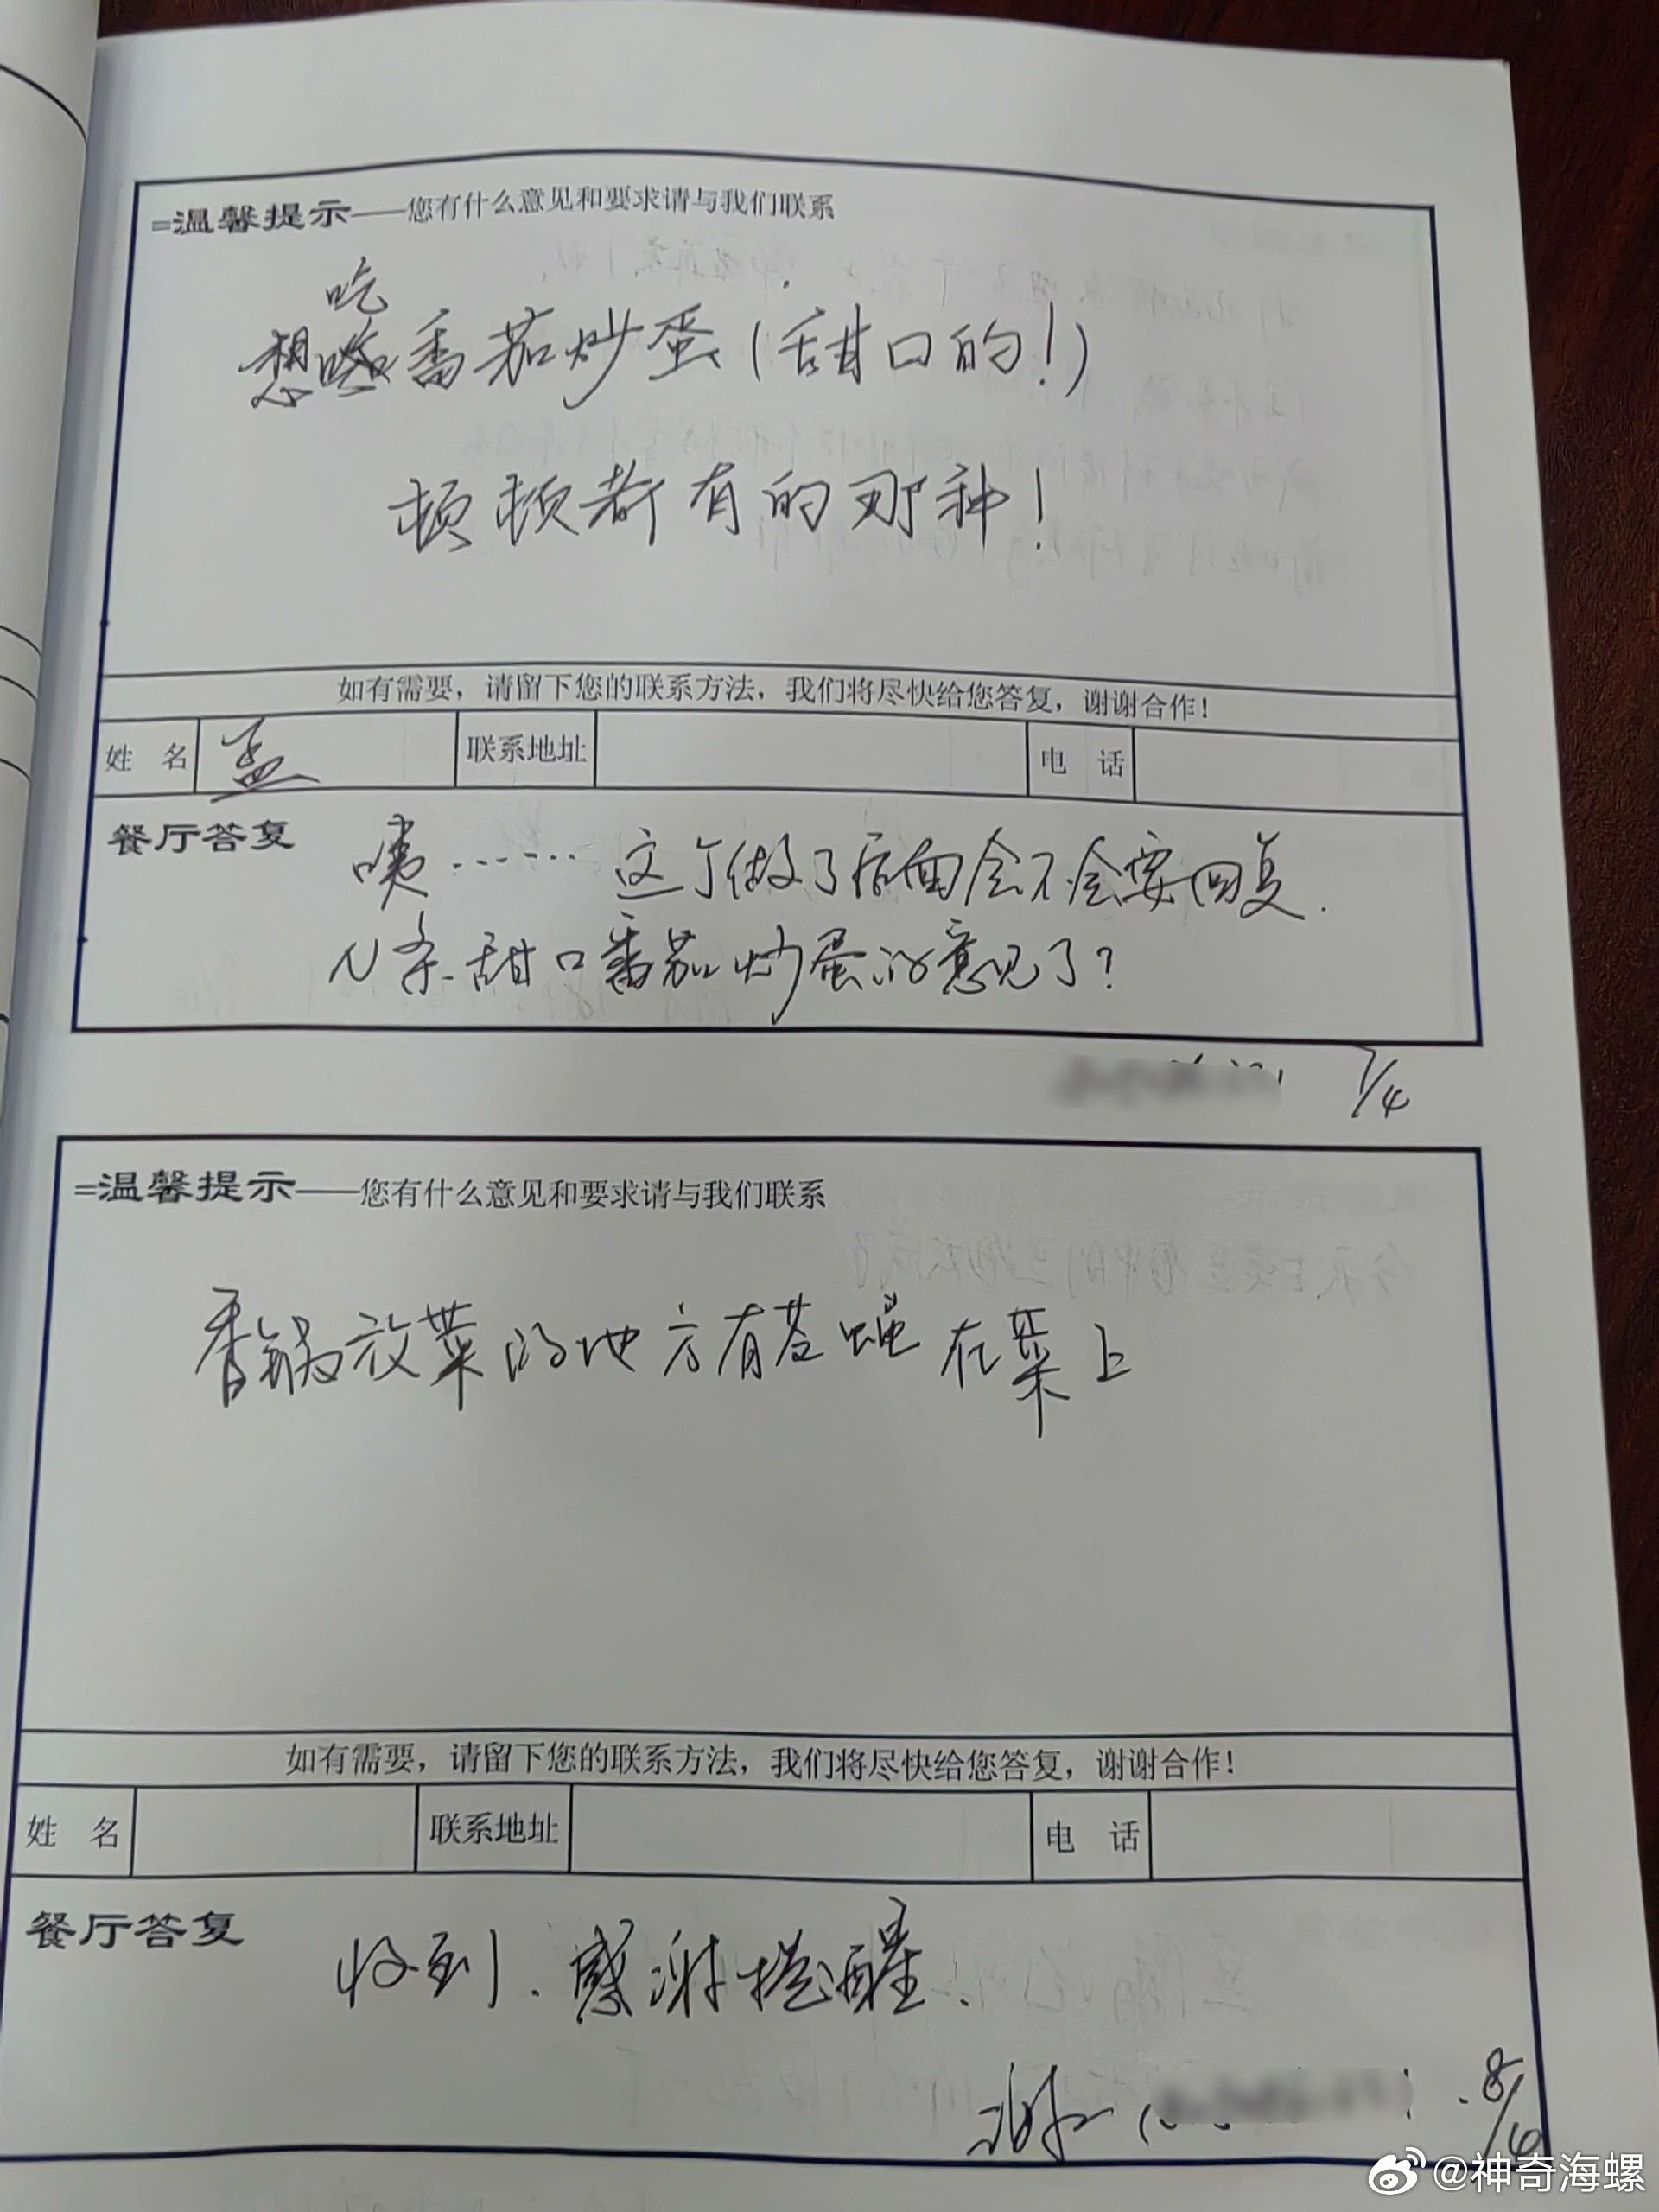 =温馨提示——您有什么意见和要求请与我们联系
吃
想番茄炒蛋(甜口的!)
顿顿都有的那种!
如有需要，请留下您的联系方法，我们将尽快给您答复，谢谢合作!
姓 名 孟 联系地址 电 话
餐厅答复 咦…… 这个做了后面会不会要回复
N条甜口番茄炒蛋的意见了?
7/4
=温馨提示——您有什么意见和要求请与我们联系
香锅放菜的地方有苍蝇在菜上
如有需要，请留下您的联系方法，我们将尽快给您答复，谢谢合作!
姓 名 联系地址 电 话
餐厅答复 收到.感谢提醒.
8/4
@神奇海螺